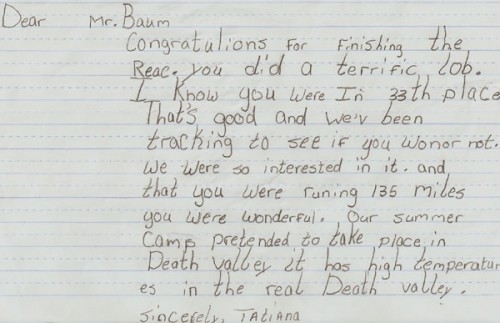 Dear Mr. Baum
Congratulions For Finishing the
Reac. You did a terrific Job.
I Know you were In 33th place
That's good and we'v been
tracking to see if you wonor not.
We were so interested in it. and
that you were runing 135 miles
you were wonderful. Our summer
Camp pretended to take place in
Death valley it has high temperatur
es in the real Death valley.
Sincerely, Tatiana